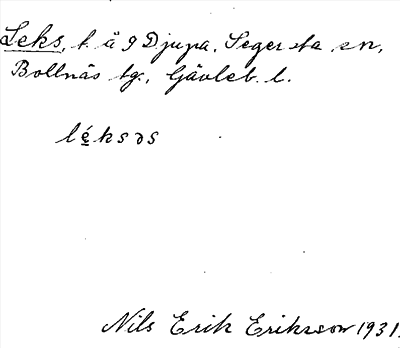 Leks, t. å 9 Djupa, Segersta sn,
Bollnäs tg., Gävleb. l.
léksəs
Nils Erik Eriksson 1931.